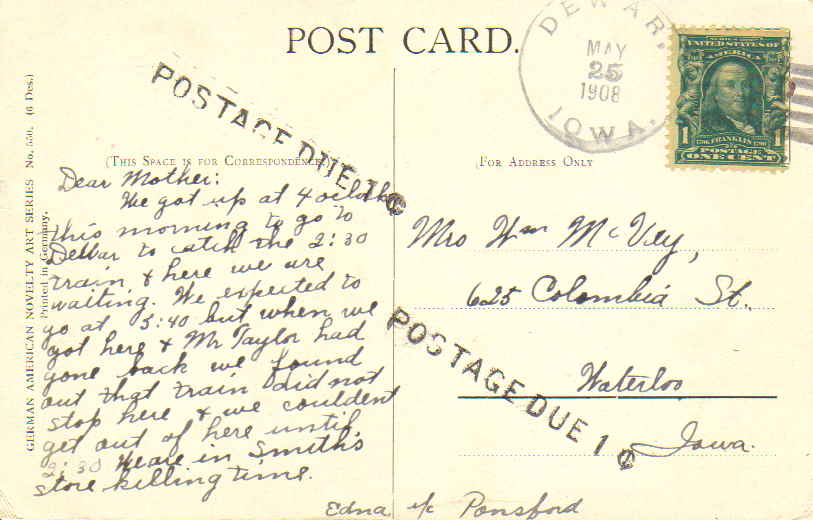 POST CARD.
DEWAR,
MAY
25
1908
IOWA.
UNITED STATES OF
AMERICA
1
1
FRANKLIN
POSTAGE
ONE CENT
POSTAGE DUE 1 ¢
(THIS SPACE IS FOR CORRESPONDENCE.)
(FOR ADDRESS ONLY
Dear Mother:
We got up at 4 oclock
this morning to go to
Dewar to catch the 2:30
train & here we are
waiting. We expected to
go at 5:40 but when we
got here & Mr Taylor had
gone back we found
out that train did not
stop here & we couldent
get out of here until
2:30 We are in Smith's
store killing time.
Edna Ponsford
Mrs Wm McVey,
625 Colombia St.,
Waterloo
Iowa.
POSTAGE DUE 1 ¢
GERMAN AMERICAN NOVELTY ART SERIES No. 550. (6 Des.)
Printed in Germany.